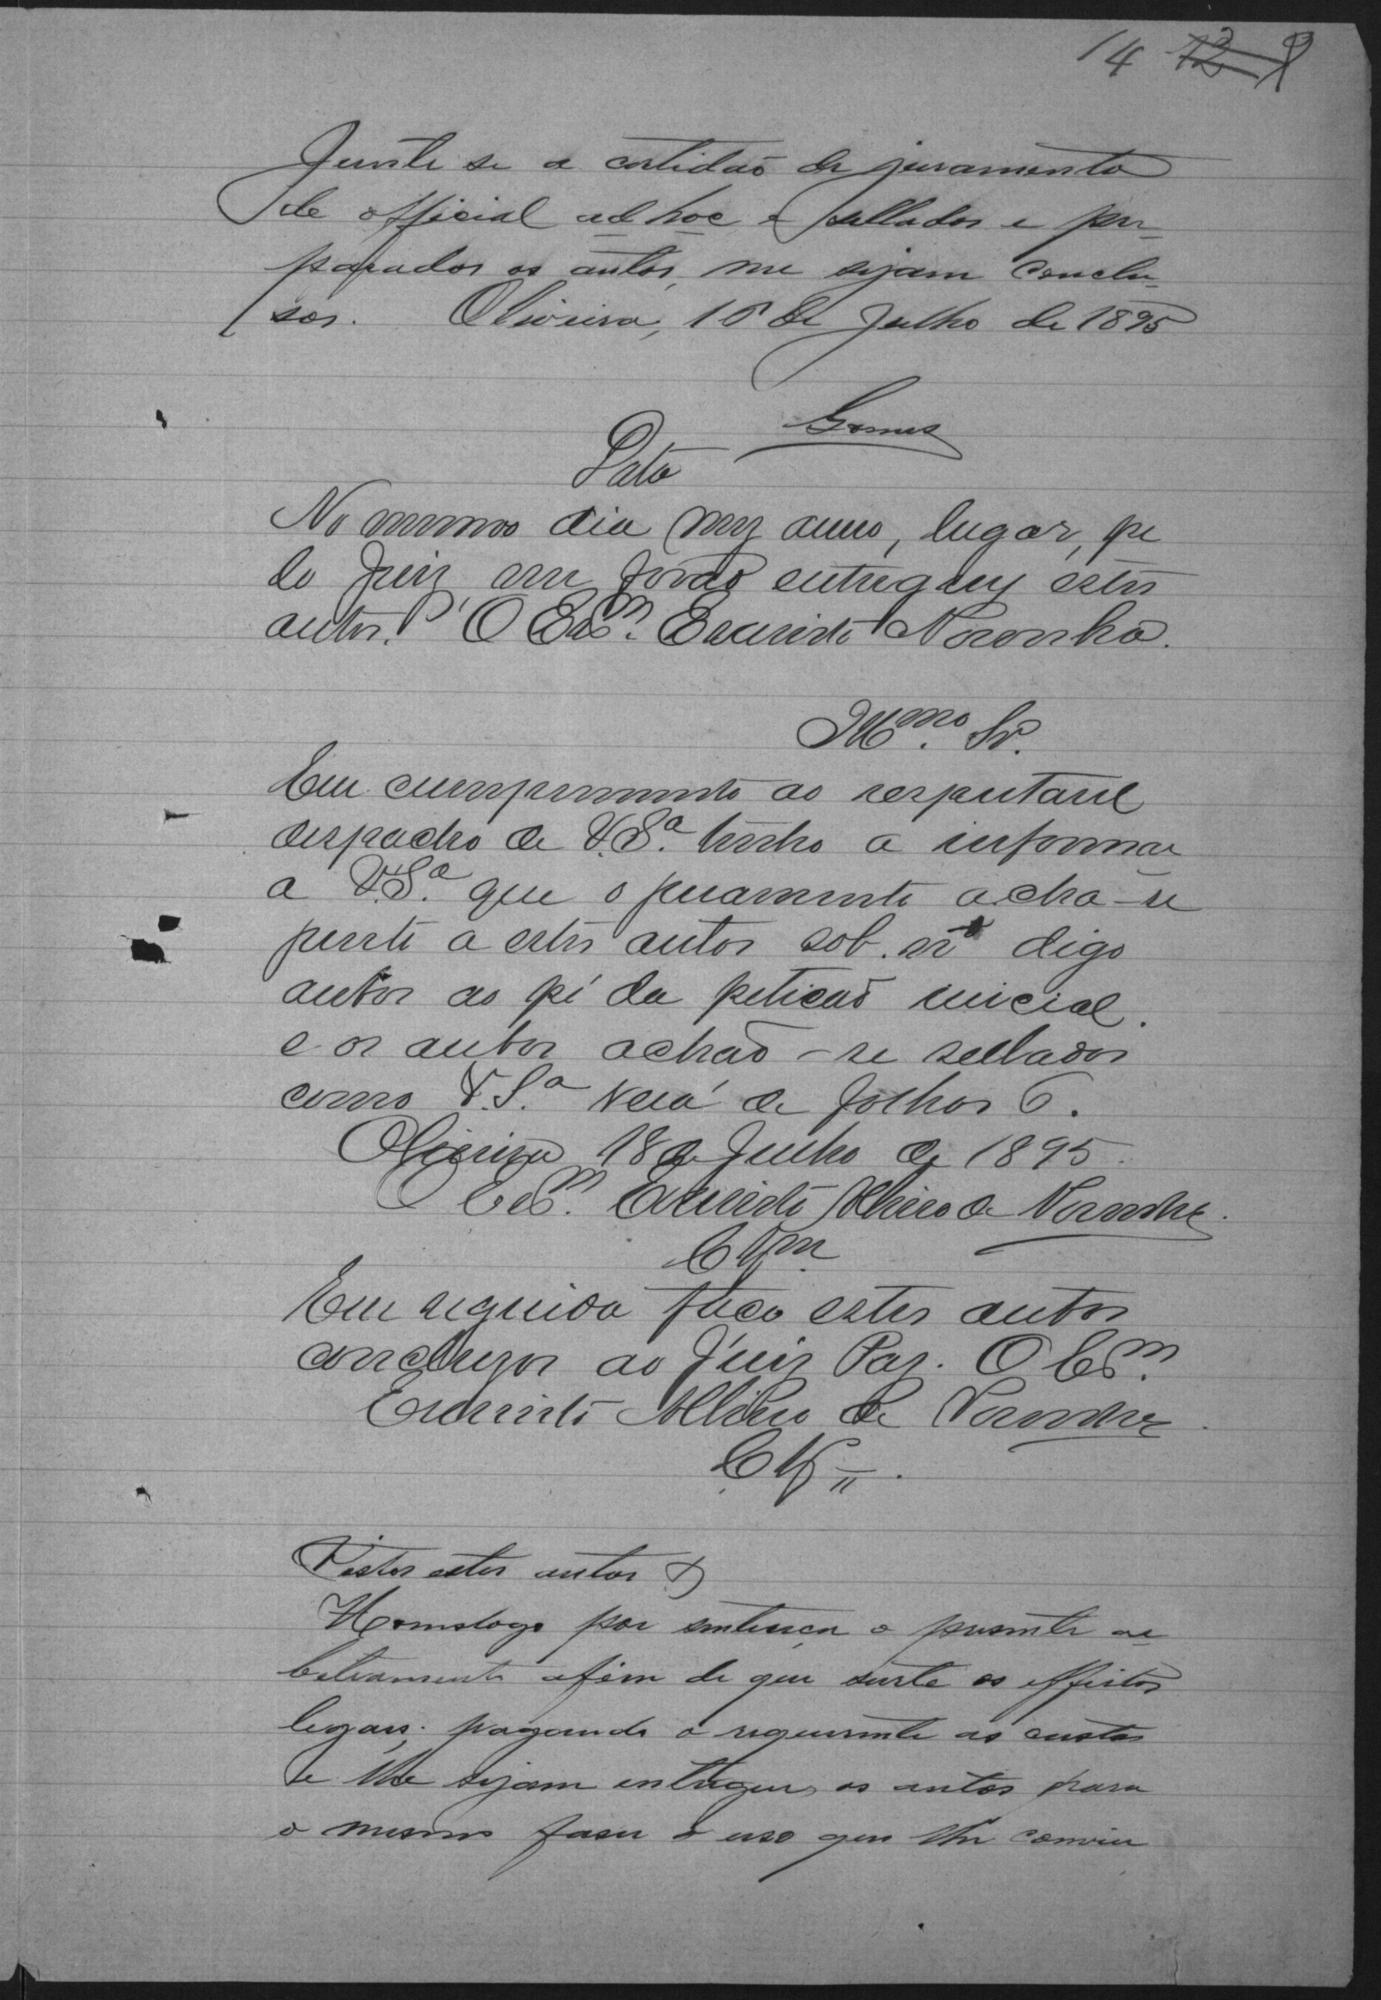 14 12 9
Junte se a certidão de juramento
de official ad hoc e sellados e pre-
parados os autos, me sejam conclu-
sos. Oliveira, 18 de Julho de 1895
Gomes
Data
No mesmo dia mez anno, lugar, pe
lo Juiz me forão entregues estes
autos. O Escm. Evaristo Noronha.
Illmo. Sr.
Em cumprimento ao respeitavel
despacho de V.Sa. tenho a informar
a V.Sa. que o juramento acha-se
junto a estes autos sob. no digo
autos ao pé da petição inicial.
e os autos achão-se sellados
como V.Sa. verá de folhas 6.
Oliveira 18 de Julho de 1895.
O Escm. Evaristo Albino de Noronha.
Clsm.
Em seguida faço estes autos
conclusos ao Juiz Paz. O Escm.
Evaristo Albino de Noronha.
Cls.
Vistos estes autos &
Homologo por sentença o presente ar
bitramento afim de que surte os effeitos
legaes, pagando o requerente as custas
e lhe sejam entregues os autos para
o mesmo fazer o uso que lhe convier